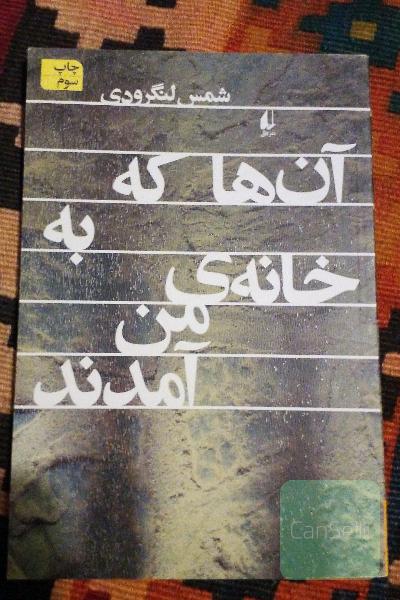 چاپ
سوم
شمس لنگرودی
آن‌ها که
به
خانه‌ی
من
آمدند
CanSell